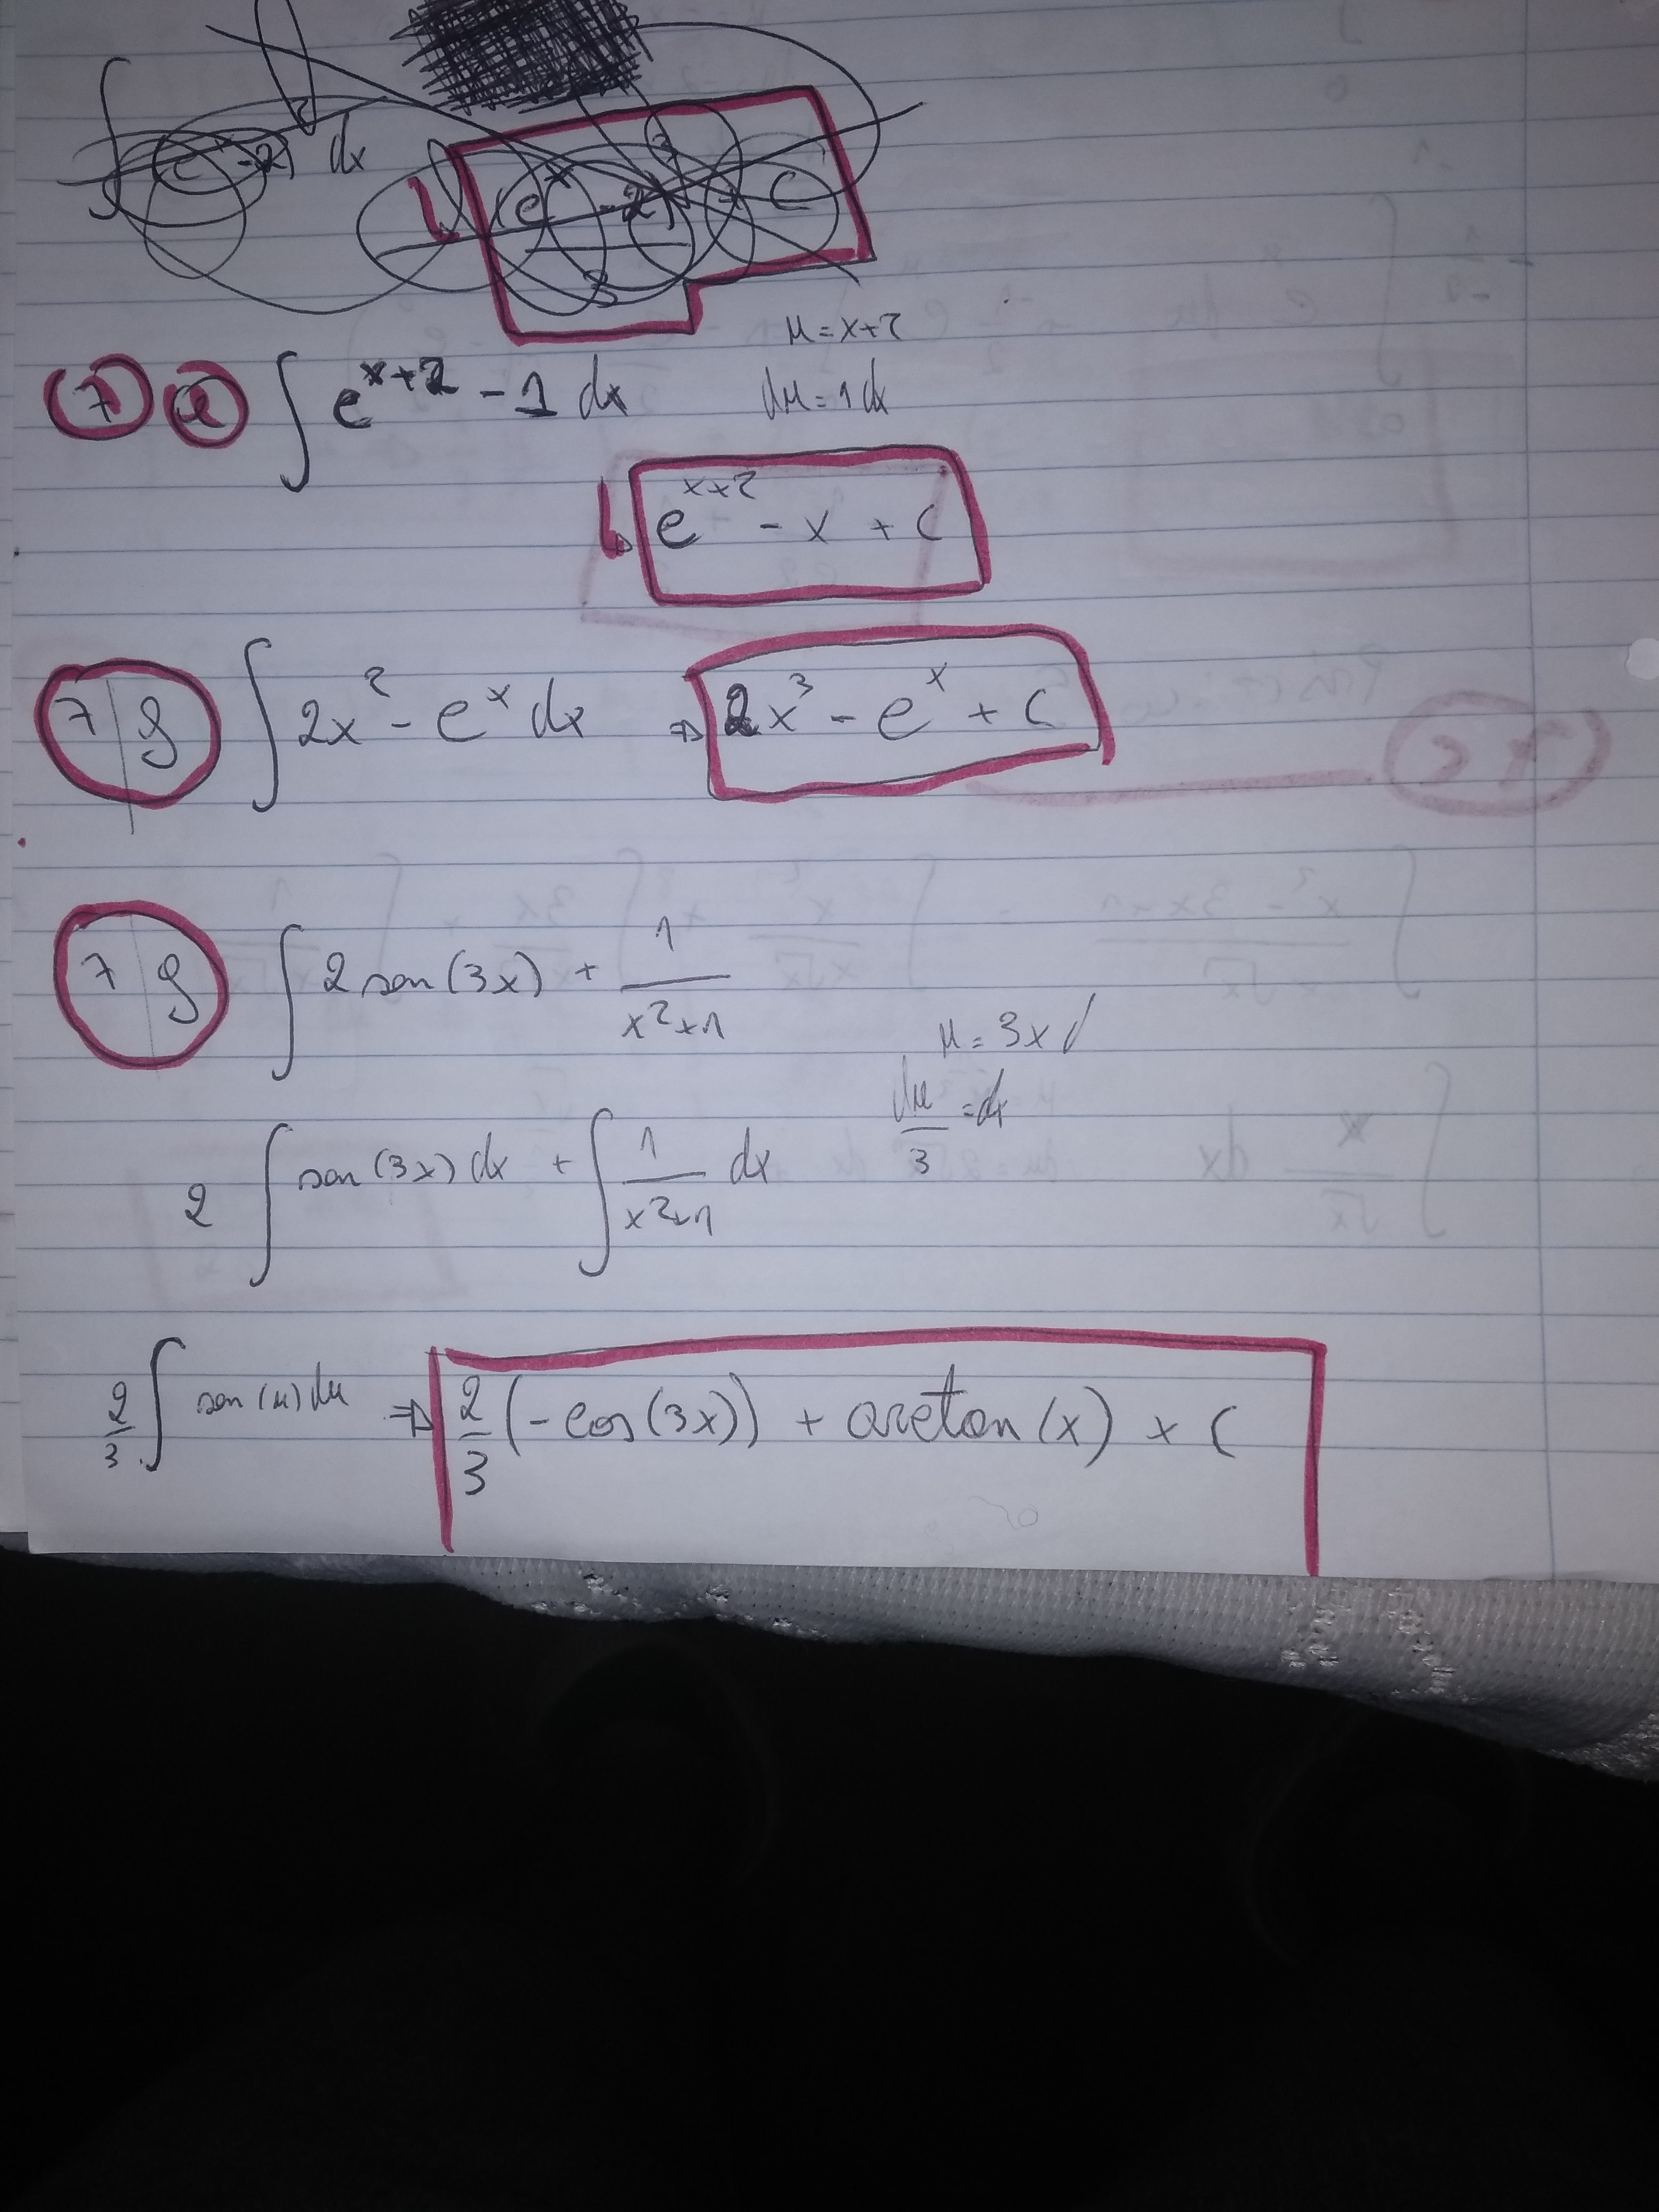 ∫ dx (e^x - 2)^3 + C
3
μ = x+2
7 e ∫ e^(x+2) - 1 dx dμ = 1 dx
↳ e^(x+2) - x + C
7 | g ∫ 2x^2 - e^x dx ⇒ 2x^3 - e^x + C
7 | g ∫ 2 sen(3x) + 1/(x^2+1)
μ = 3x
dμ/3 = dx
2 ∫ sen(3x) dx + ∫ 1/(x^2+1) dx
2/3 ∫ sen(μ) dμ ⇒ 2/3 (-cos(3x)) + arctan(x) + C